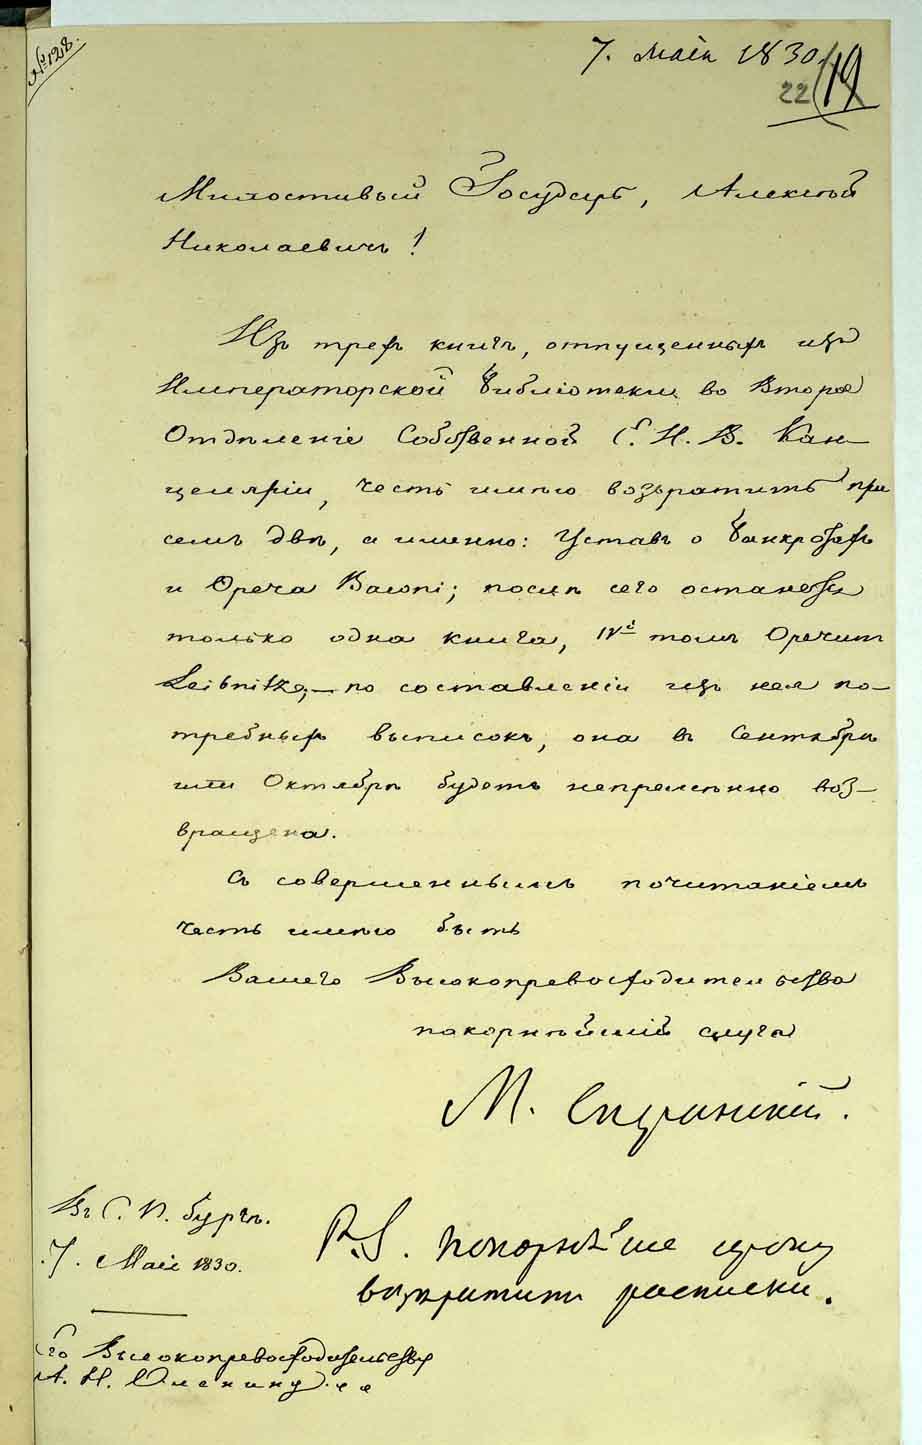 № 128.
7. Маія 1830.
22 19
Милостивый Государь, Алексѣй
Николаевичь!
Изъ трехъ книгъ, отпущенныхъ изъ
Императорской Библіотеки во Второе
Отдѣленіе Собственной Е. И. В. Кан-
целяріи, честь имѣю возвратить при
семъ двѣ, а именно: Уставъ о Банкротахъ
и Opera Baconi; послѣ сего останется
только одна книга, IVй томъ Operum
Leibnitze; – по составленіи изъ нея по-
требныхъ выписокъ, она въ Сентябрѣ
или Октябрѣ будетъ непремѣнно воз-
вращена.
Съ совершеннымъ почитаніемъ
честь имѣю быть
Вашего Высокопревосходительства
покорнѣйшій слуга
М. Сперанскій.
P.S. Покорнѣйше прошу
возвратить расписки.
Въ С. П. бургѣ.
7. Маія 1830.
Его Высокопревосходительству
А. Н. Оленину